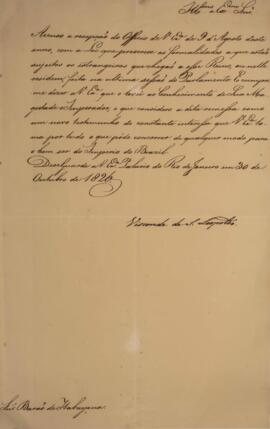 Illmo. e Exmo. Snr.
Accuso a recepção do Officio de V. Exa. de 9 d'Agosto deste
anno, com a Ley que prescreve as formalidades a que estão
sujeitos os estrangeiros que chegão a esse Reino, ou nelle
residem, feita na ultima sessão do Parlamento: Cumpre-
me dizer a V. Exa. que o levei ao Conhecimento de Sua Ma-
gestade o Imperador, o que considera a dita remessa como
um novo testemunho do constante interesse que V. Exa. to-
ma por tudo o que póde concorrer de qualquer modo para
o bem ser do Imperio do Brazil.
Deos Guarde a V. Exa. Palacio do Rio de Janeiro em 30 de
Outubro de 1826.
Visconde de S. Leopoldo.
Snr. Barão de Itabayana.